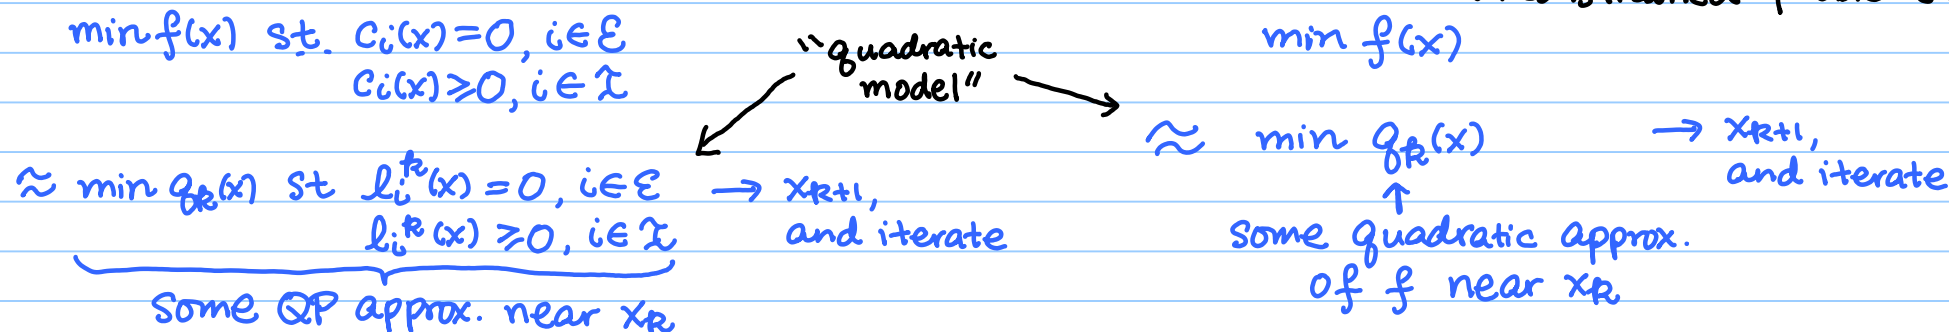 min f(x) st. Ci(x)=0, i∈ℰ
Ci(x)⩾0, i∈ℐ
"quadratic
model"
≈ min qk(x) st lᵢᵏ(x) = 0, i∈ℰ → xk+1,
lᵢᵏ(x) ⩾0, i∈ℐ and iterate
some QP approx. near xk
min f(x)
≈ min qk(x) → xk+1,
and iterate
↑
some quadratic approx.
of f near xk